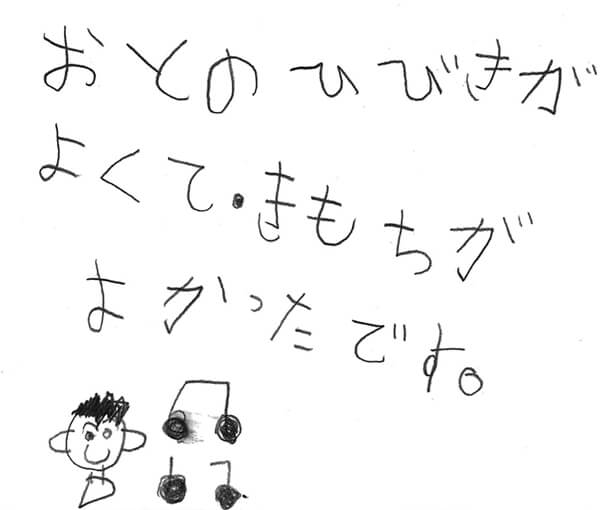 おとのひびきが
よくて・きもちが
よかったです。